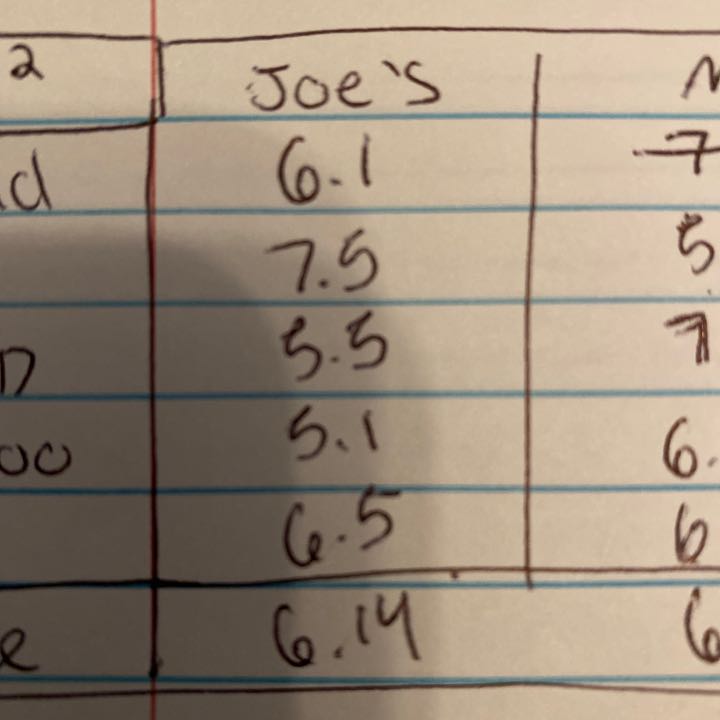 2 Joe's
6.1 7
7.5 5
5.5 7
5.1 6.
6.5 6
6.14 6